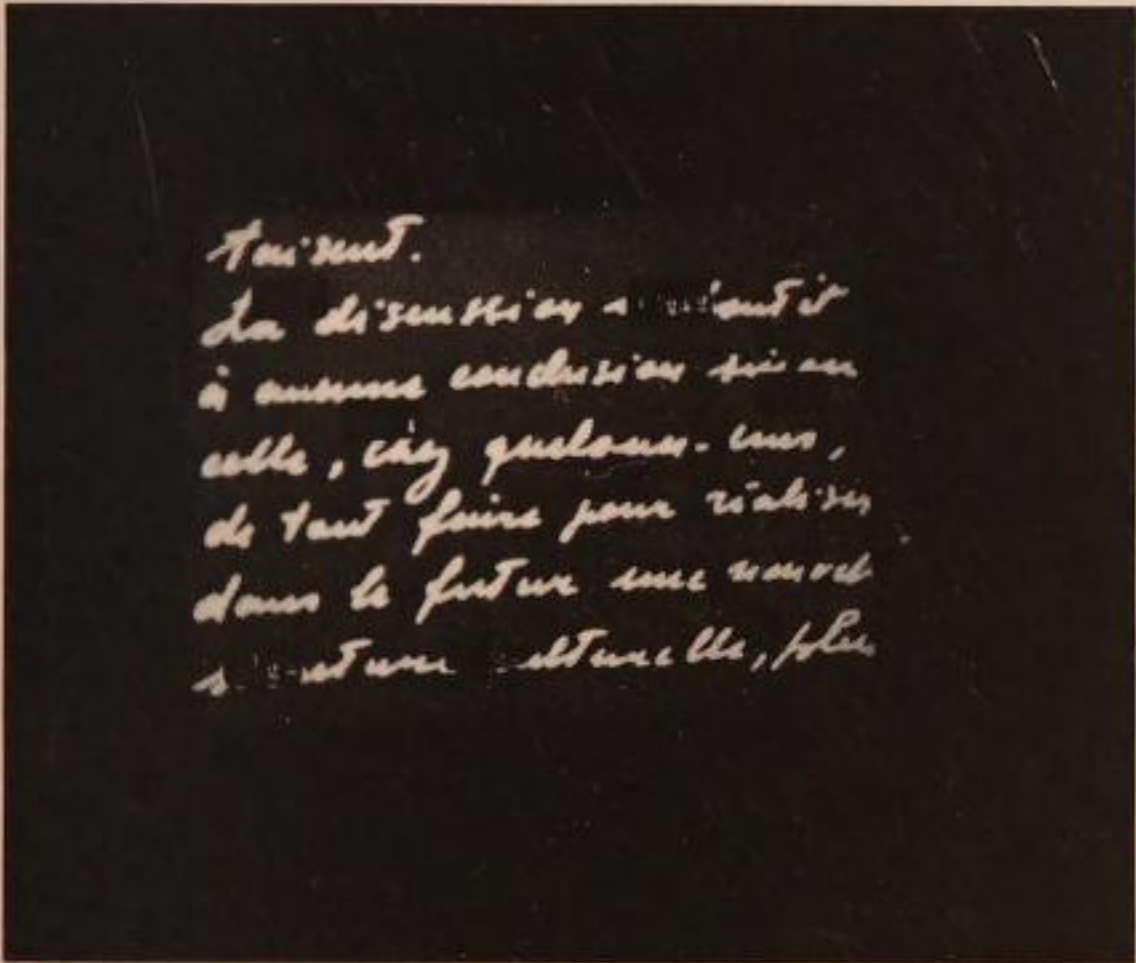 taisent.
La discussion
à aucune conclusion sinon
celle, chez quelques-uns,
de tout faire pour réaliser
dans le futur une nouvel
culturelle, plus